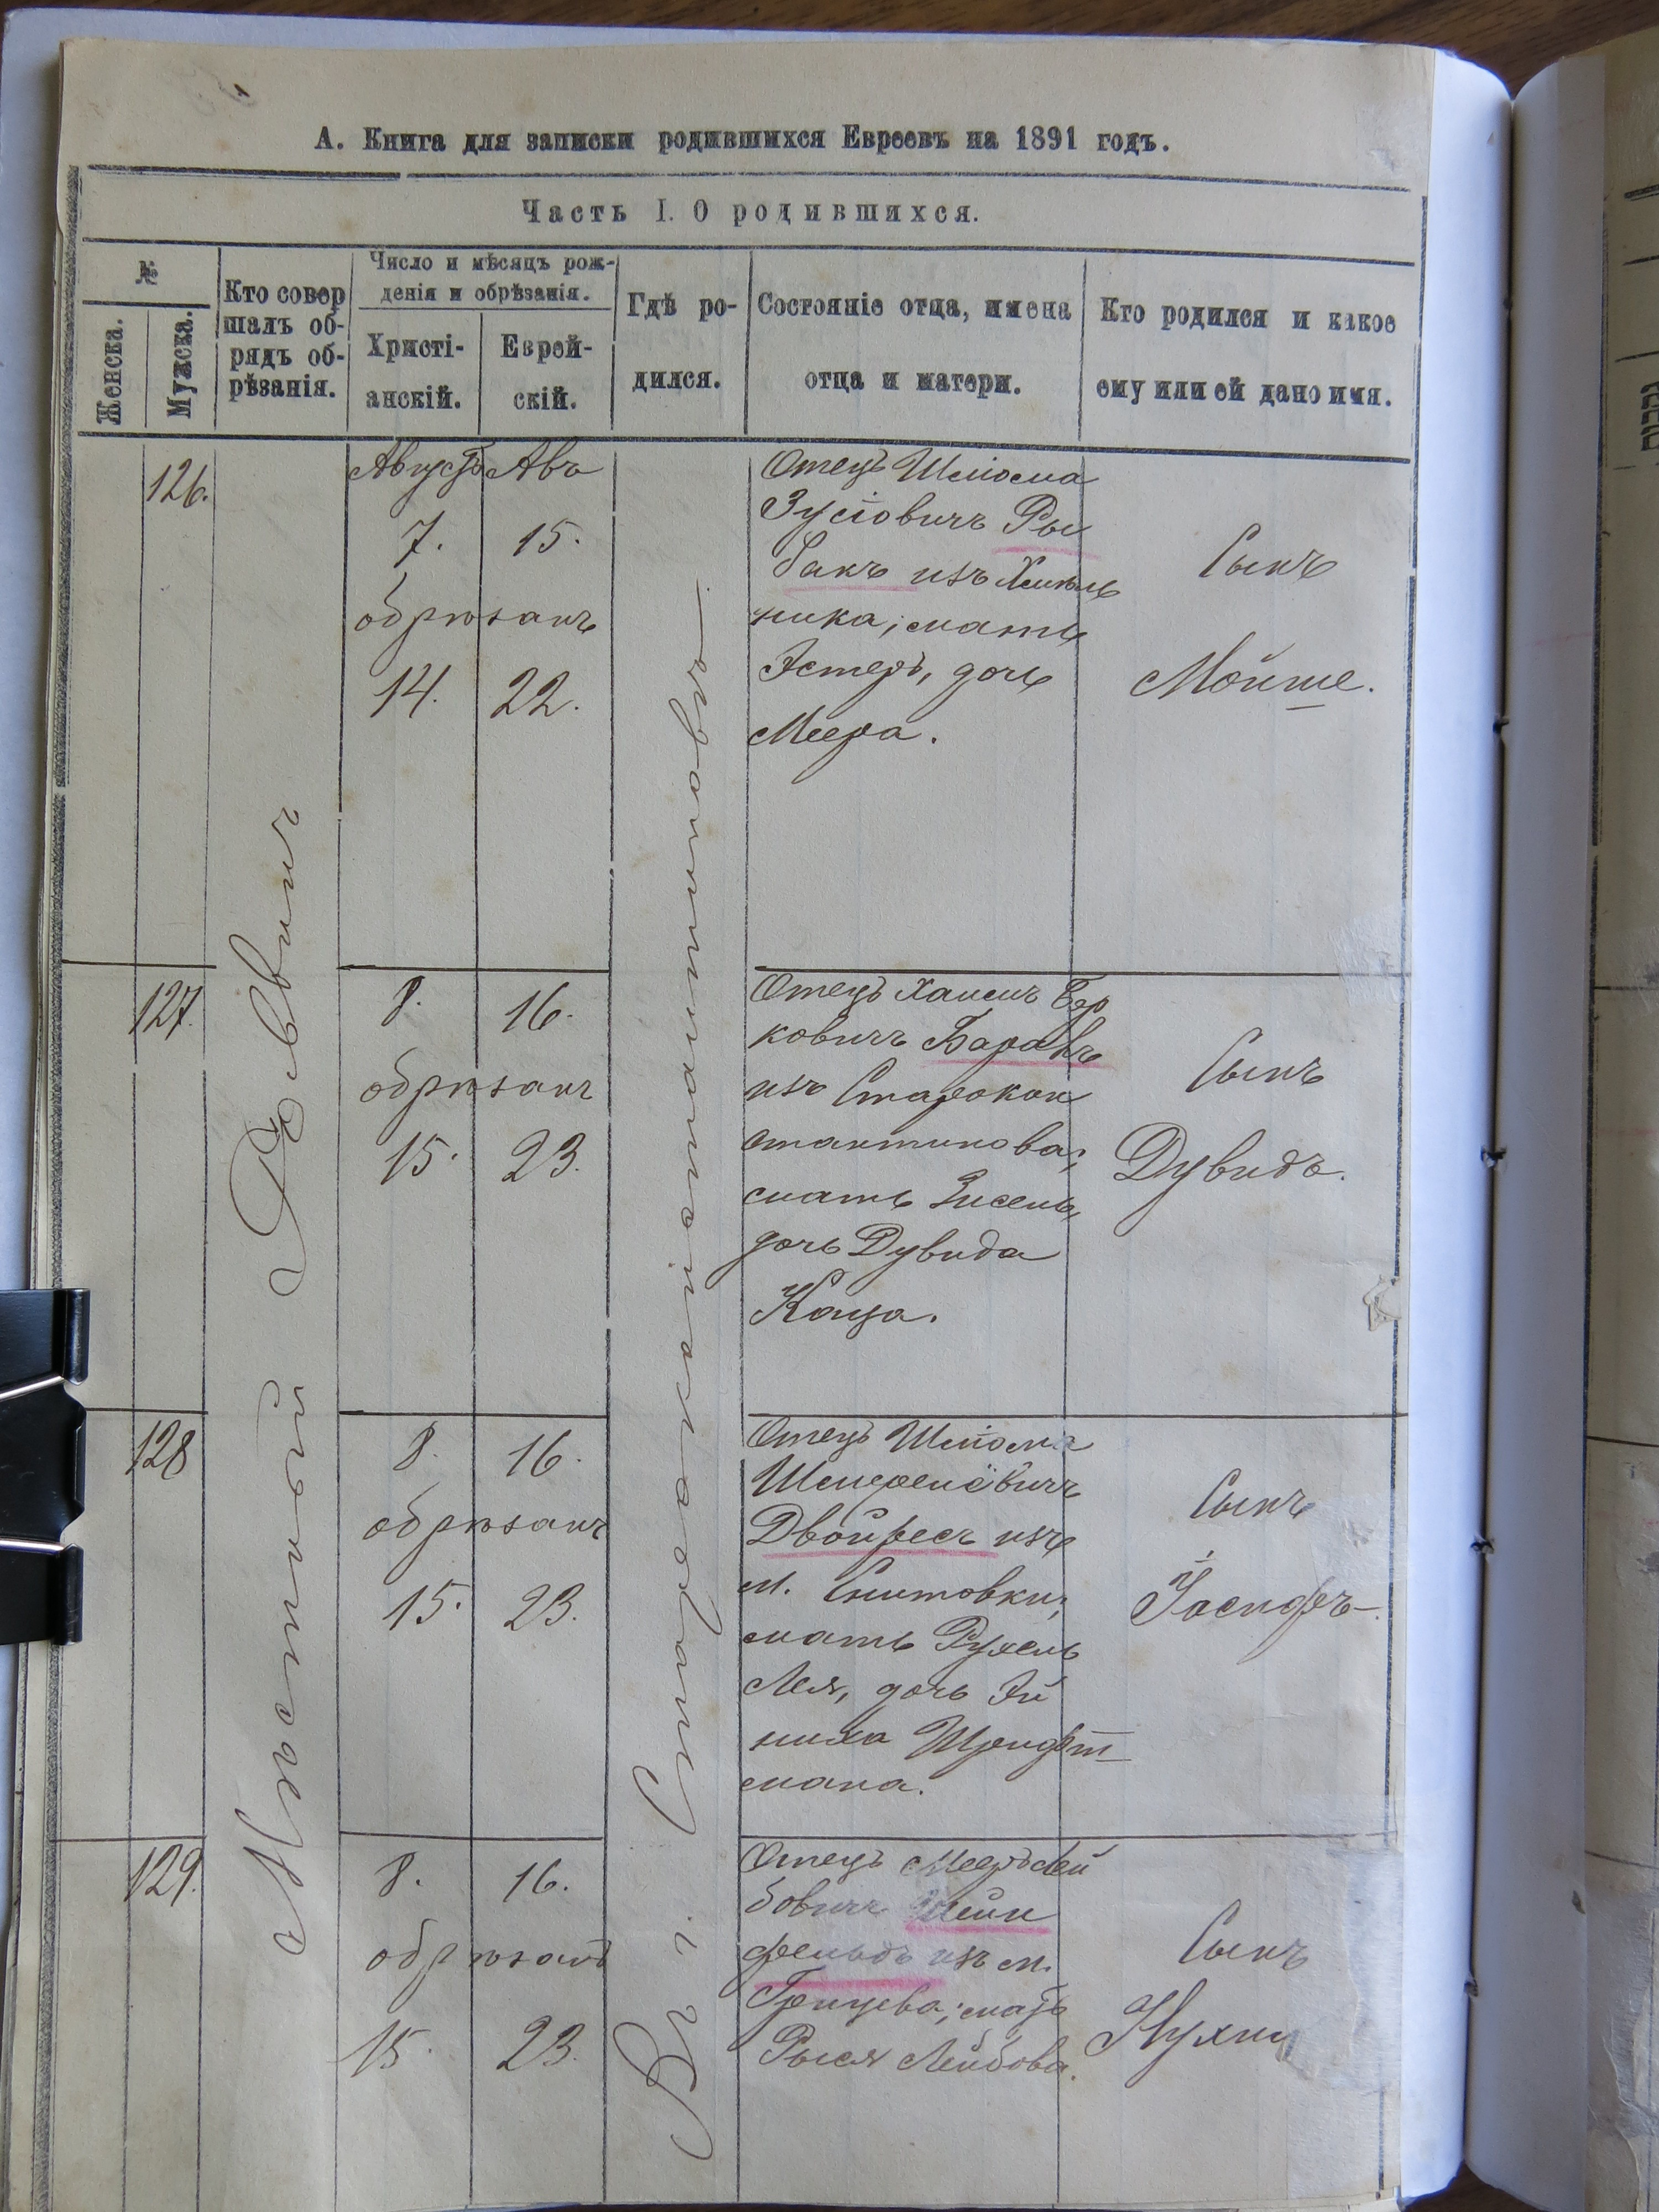 А. Книга для записки родившихся Евреевъ на 1891 годъ.
Часть I. О родившихся.
№
Женска.
Мужска.
Кто совер
шалъ об-
рядъ об-
рѣзанія.
Число и мѣсяцъ рож-
денія и обрѣзанія.
Христі-
анскій.
Еврей-
скій.
Гдѣ ро-
дился.
Состояніе отца, имена
отца и матери.
Кто родился и какое
ему или ей дано имя.
Мѣстный Рѣвичъ
Въ г. Староконстантиновѣ
126.
Августъ Авъ
7. 15.
обрѣзанъ
14. 22.
Отецъ Шлiома
Зусiовичъ Ры
бакъ изъ Хмѣль
ника; мать
Эстеръ, дочь
Меера.
Сынъ
Мойше.
127.
8. 16.
обрѣзанъ
15. 23.
Отецъ Хаимъ Бер
ковичъ
изъ Старокон
стантинова;
мать Зисель,
дочь Дувида
Каца.
Сынъ
Дувидъ.
128
8. 16.
обрѣзанъ
15. 23.
Отецъ Шлiома
Двойресъ изъ
м. Снитовки;
мать Рухель
Лея, дочь Эй
ниха Шрифт
мана.
Сынъ
Iосифъ.
129.
8. 16.
обрѣзанъ
15. 23.
Отецъ Мееръ Лей
бовичъ Шейн
фельдъ изъ м.
Грицева; мать
Рыся Лейбова.
Сынъ
Нухим